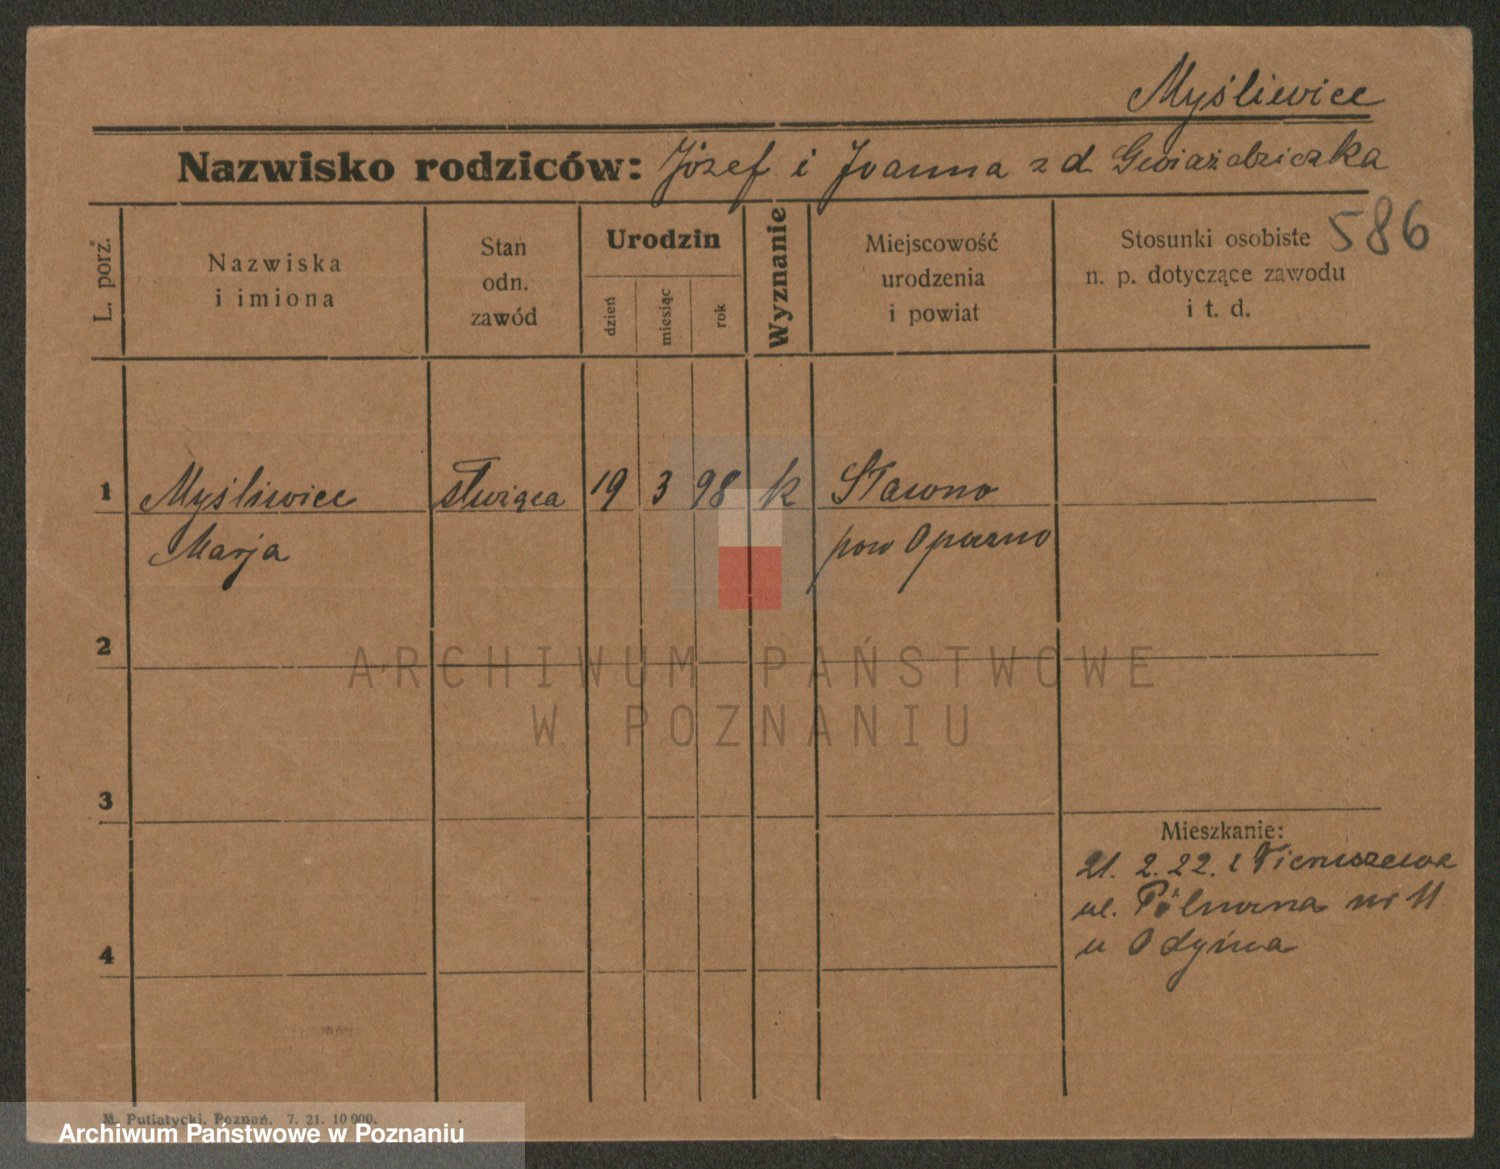 Myśliwiec
Nazwisko rodziców: Józef i Joanna z d. Gwiaździczka
586
L. porz.
Nazwiska
i imiona
Stan
odn.
zawód
Urodzin
dzień
miesiąc
rok
Wyznanie
Miejscowość
urodzenia
i powiat
Stosunki osobiste
n. p. dotyczące zawodu
i t. d.
1 Myśliwiec służąca 19 3 98 k Sławno
Marja pow Opoczno
2
3
4
Mieszkanie:
21. 2. 22.
ul. nr 11
u
M. Putiatycki, Poznań. 7. 21. 10000.
ARCHIWUM PAŃSTWOWE
W POZNANIU
Archiwum Państwowe w Poznaniu